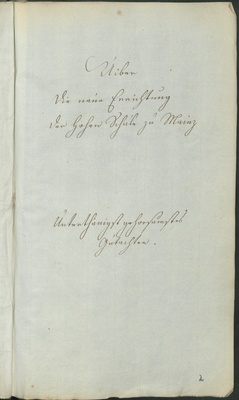 Uiber
Die neue Errichtung
der Hohen Schule zu Mainz
Unterthänigst gehorsamstes
Gutachten.
2